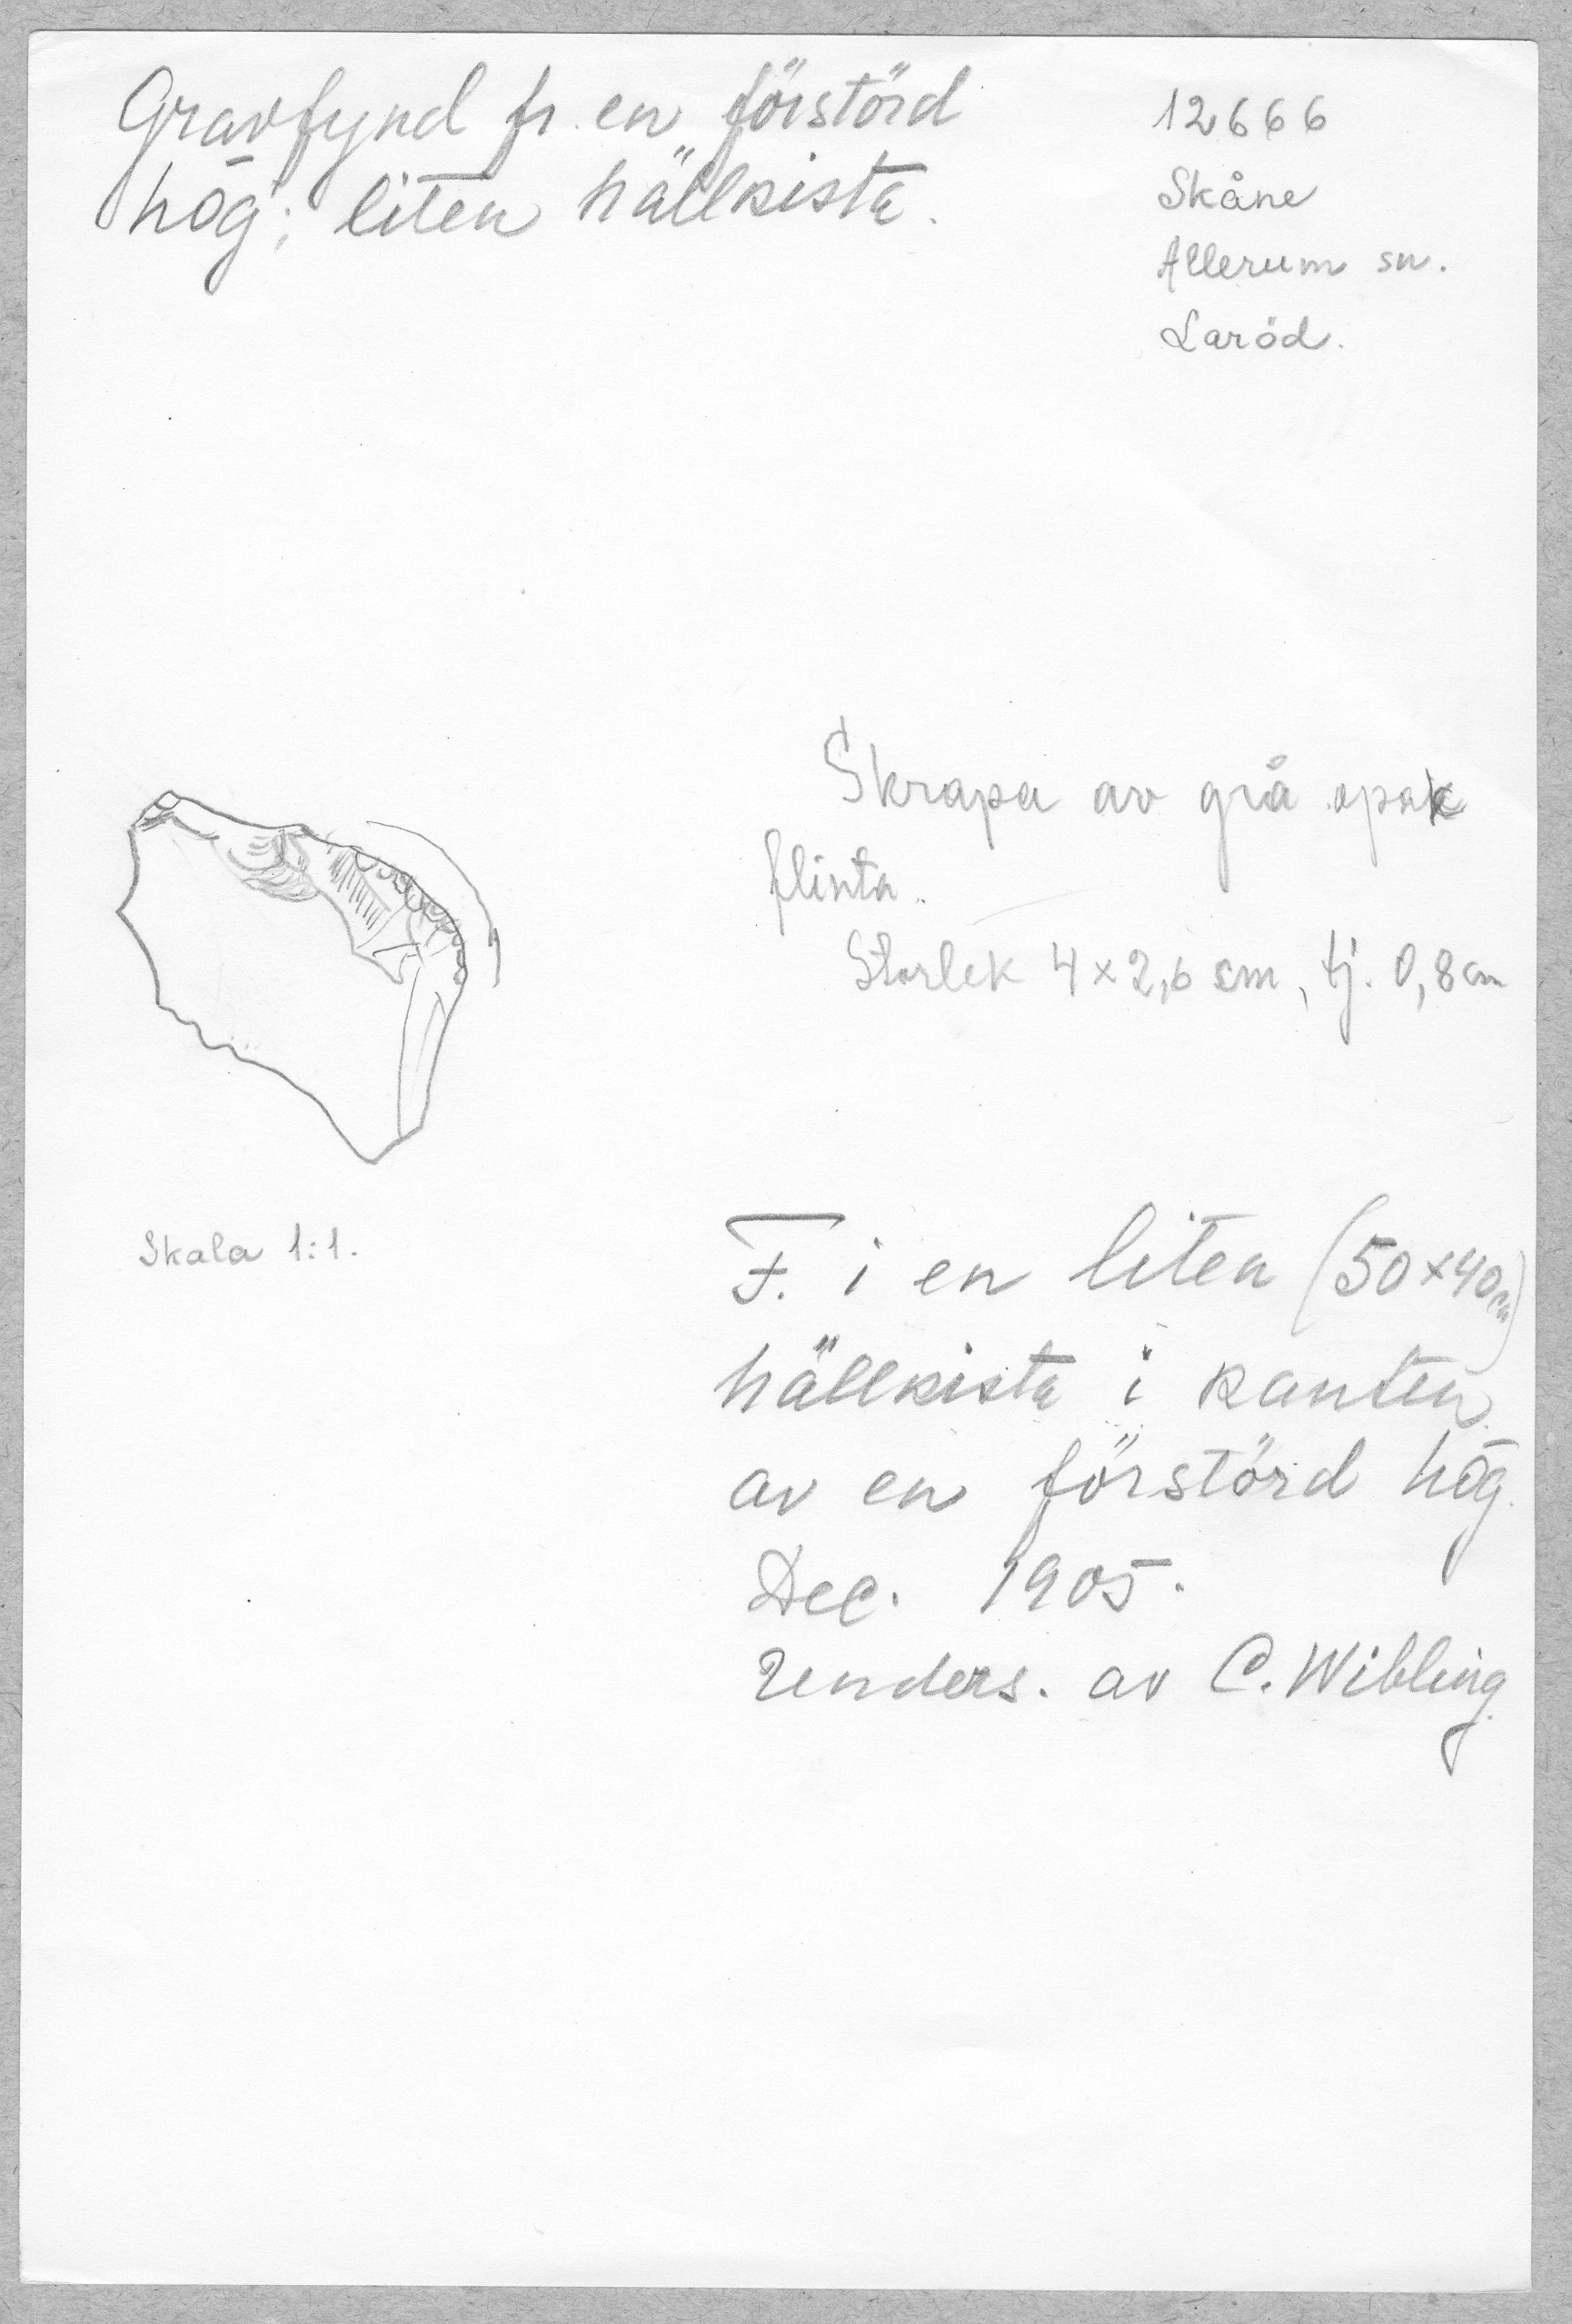 Gravfynd fr. en förstörd
hög; liten hällkista.
12666
Skåne
Allerum sn.
Laröd.
Skrapa av grå opak
flinta.
Storlek 4 × 2,6 cm, tj. 0,8 cm
Skala 1:1.
F. i en liten (50 × 40 cm)
hällkista i kanten
av en förstörd hög.
Dec. 1905.
Unders. av C. Wibling.